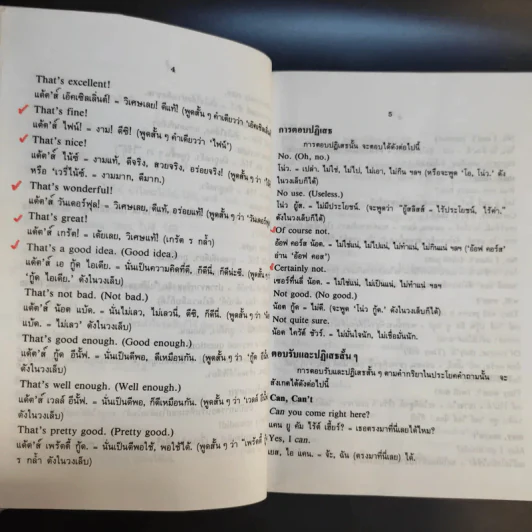 4
That's excellent!
แด้ต'ส์ เอ๊คเซิลเล็นต์! = วิเศษเลย! ดีแท้! (พูดสั้น ๆ คำเดียวว่า
That's fine!
แด้ต'ส์ ไฟน์! = งาม! ดีซิ! (พูดสั้น ๆ คำเดียวว่า 'ไฟน์')
That's nice!
แด้ต'ส์ ไน้ซ์ = งามแท้, ดีจริง, สวยจริง, อร่อยจริง! (พูดสั้น ๆ ว่า
หรือ 'เวรี่ไน้ซ์. = งามมาก, ดีมาก.)
That's wonderful!
แด้ต'ส์ วันเดอร์ฟูล! = วิเศษเลย, ดีแท้, อร่อยแท้! (พูดสั้น ๆ ว่า
That's great!
แด้ต'ส์ เกร๊ต! = เด้ยเลย, วิเศษแท้! (เกร๊ต ร กล้ำ)
That's a good idea. (Good idea.)
แด้ต'ส์ เอ กู้ด ไอเดีย. = นั่นเป็นความคิดที่ดี, ก็ดีนี่, ก็ดีน่ะซี. (พูดสั้นๆ
'กู้ด ไอเดีย.' ดังในวงเล็บ)
That's not bad. (Not bad.)
แด้ต'ส์ น้อต แบ้ด. = นั่นไม่เลว, ไม่เลวนี่, ดีซี, ก็ดีนี่. (พูดสั้น ๆ ว่า
แบ้ด. = ไม่เลว' ดังในวงเล็บ)
That's good enough. (Good enough.)
แด้ต'ส์ กู้ด อีนั้ฟ. = นั่นเป็นดีพอ, ดีเหมือนกัน. (พูดสั้น ๆ ว่า 'กู้ด
ดังในวงเล็บ)
That's well enough. (Well enough.)
แด้ต'ส์ เวลล์ อีนั้ฟ. = นั่นเป็นดีพอ, ก็ดีเหมือนกัน. (พูดสั้น ๆ ว่า 'เวลล์
ดังในวงเล็บ)
That's pretty good. (Pretty good.)
แด้ต'ส์ เพร้ตตี้ กู้ด. = นั่นเป็นดีพอใช้, พอใช้ได้. (พูดสั้น ๆ ว่า 'เพร้ตตี้
ร กล้ำ ดังในวงเล็บ)
5
การตอบปฏิเสธ
การตอบปฏิเสธนั้น จะตอบได้ดังต่อไปนี้
No. (Oh, no.)
โน่ว. = เปล่า, ไม่ใช่, ไม่ไป, ไม่เอา, ไม่กิน ฯลฯ (หรือจะพูด 'โอ, โน่ว.' ดัง
ในวงเล็บก็ได้)
No use. (Useless.)
โน่ว ยู้ส. = ไม่มีประโยชน์. (จะพูดว่า 'ยู้สลิสส์ = ไร้ประโยชน์, ไร้ค่า.'
ดังในวงเล็บก็ได้)
Of course not.
อ๊อฟ คอร์ส น้อต. = ไม่ใช่แน่, ไม่ไปแน่, ไม่ทำแน่, ไม่กินแน่ ฯลฯ ('อ๊อฟ คอร์ส'
อ่าน 'อ๊อฟ คอส')
Certainly not.
เซอร์ทึ่นลี่ น้อต. = ไม่ใช่แน่, ไม่เป็นแน่, ไม่ทำแน่ ฯลฯ
Not good. (No good.)
น้อต กู้ด. = ไม่ดี. (จะพูด 'โน่ว กู้ด.' ดังในวงเล็บก็ได้)
Not quite sure.
น้อต ไควึต์ ชัวร์. = ไม่มั่นใจนัก, ไม่เชื่อมั่นนัก.
ตอบรับและปฏิเสธสั้น ๆ
การตอบรับและปฏิเสธสั้น ๆ ตามคำกริยาในประโยคคำถามนั้น จะ
สังเกตได้ดังต่อไปนี้
Can, Can't
Can you come right here?
แคน ยู คัม ไร้ต์ เฮี้ยร์? = เธอตรงมาที่นี่เลยได้ไหม?
Yes, I can.
เยส, ไอ แคน. = จ้ะ, ฉัน (ตรงมาที่นี่เลย) ได้.